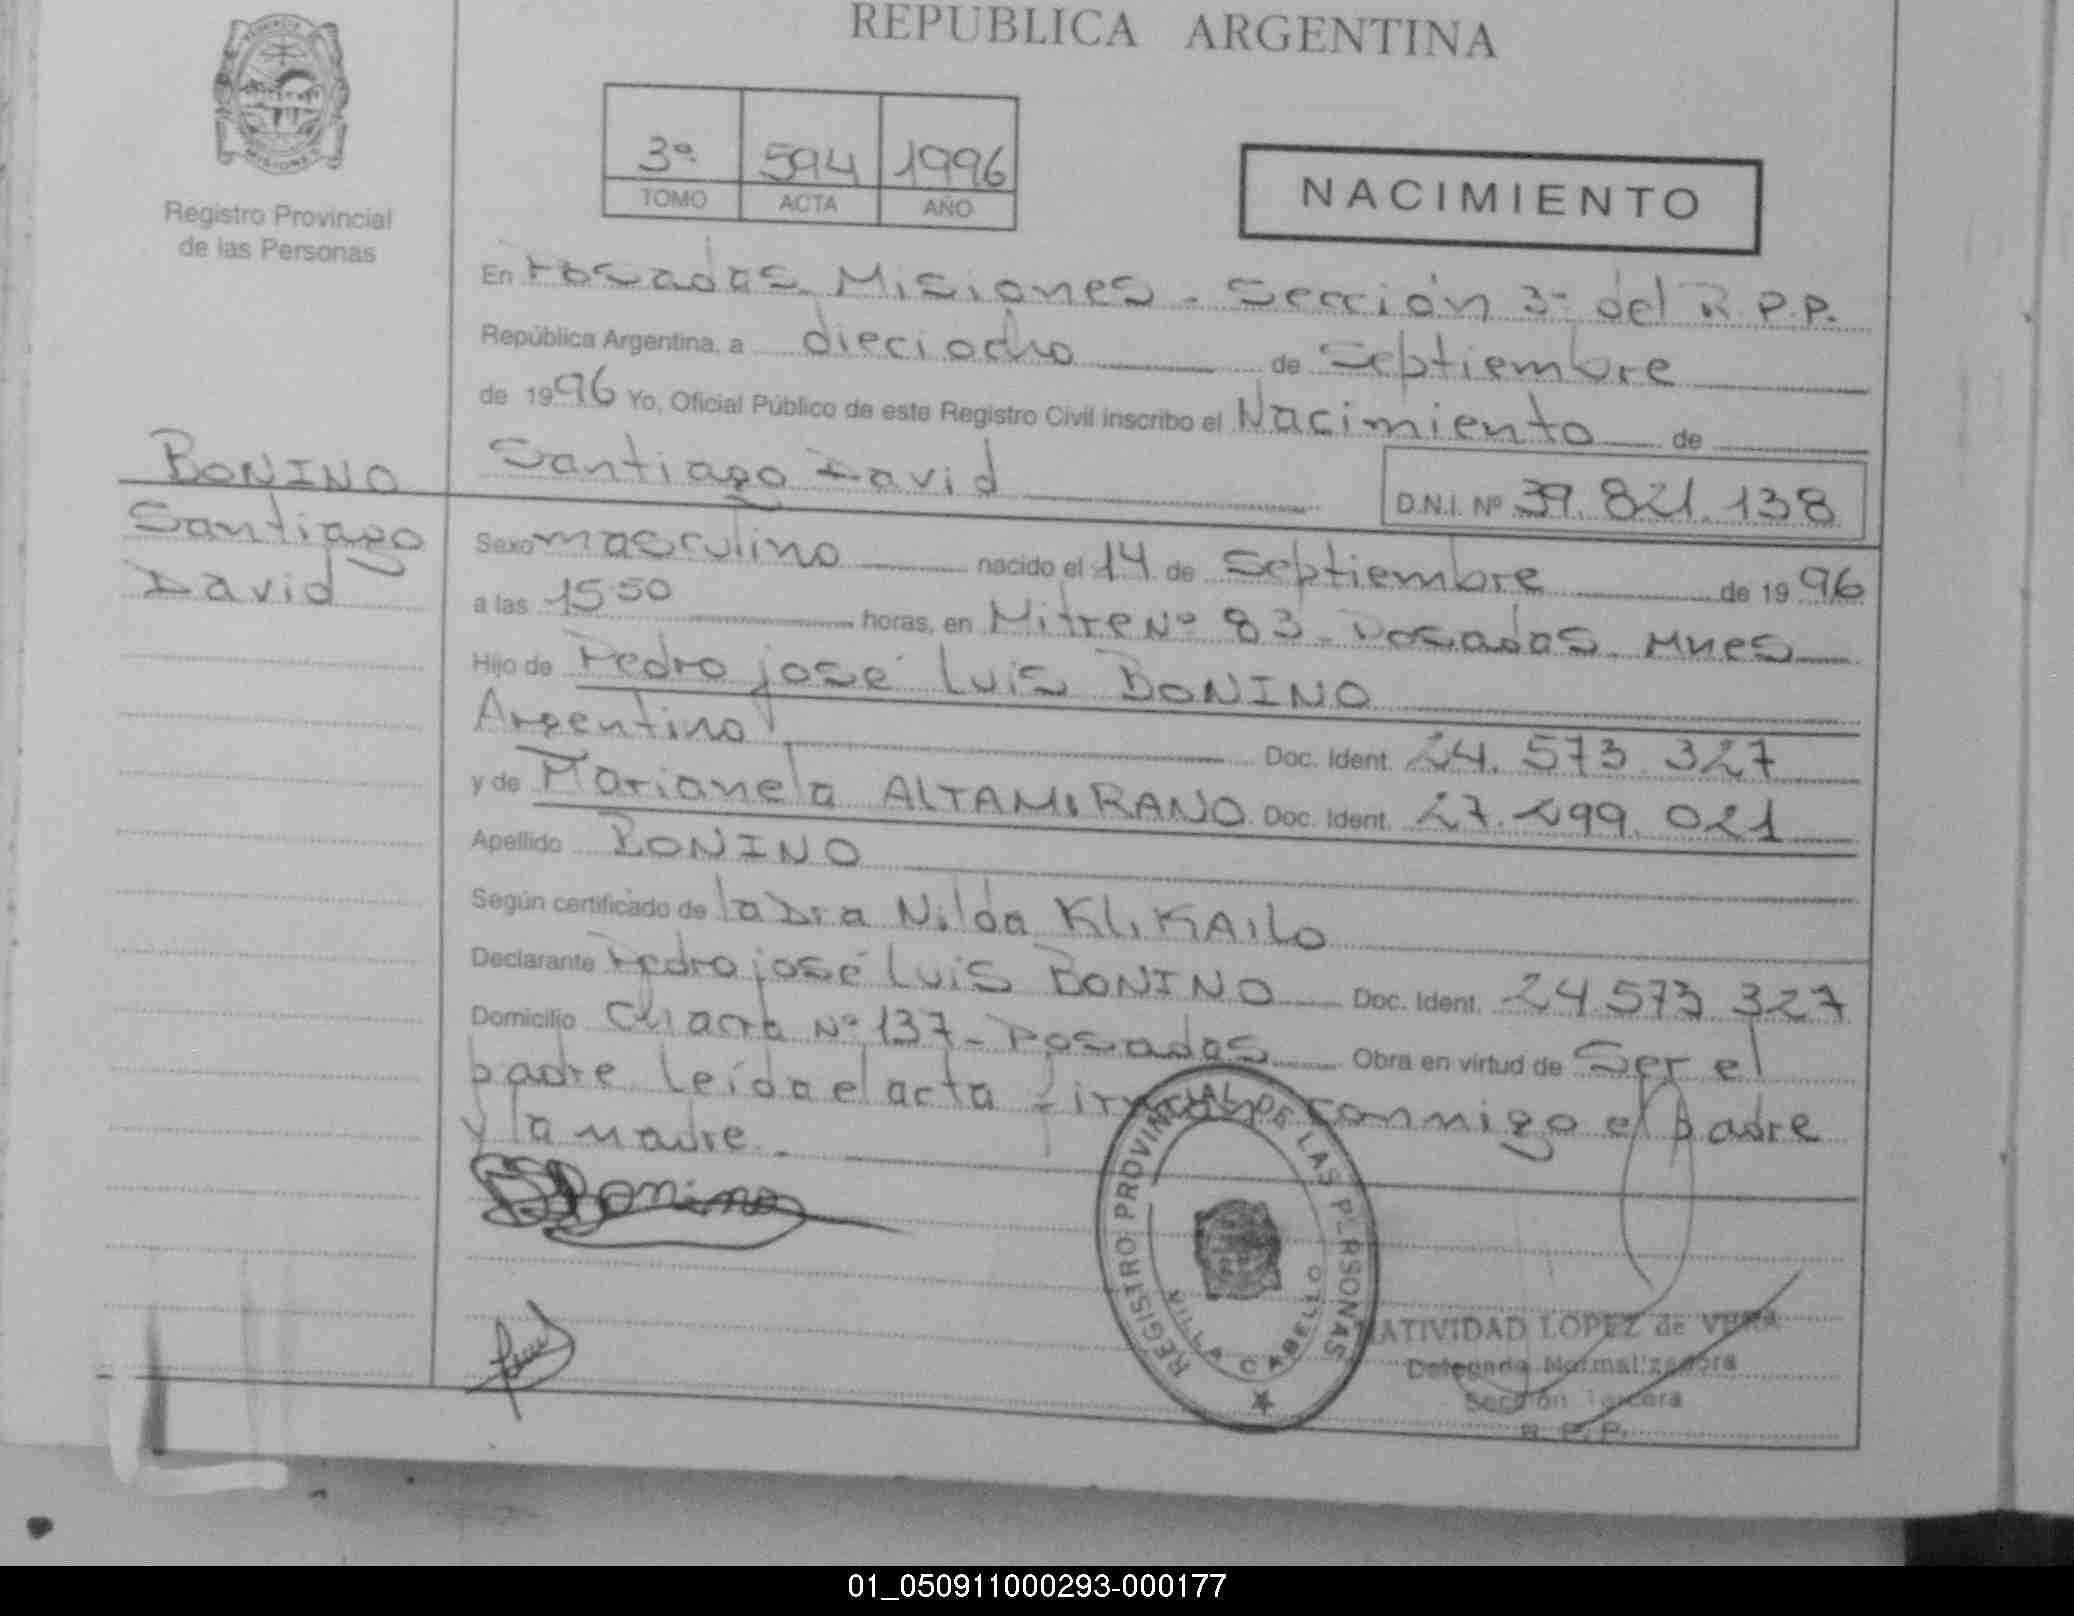 REPUBLICA ARGENTINA
Registro Provincial
de las Personas
3º 594 1996
TOMO ACTA AÑO
NACIMIENTO
En Posadas Misiones - Sección 3ª del R.P.P.
República Argentina, a dieciocho de Septiembre
de 1996 Yo, Oficial Público de este Registro Civil inscribo el Nacimiento de
Santiago David D.N.I. Nº 39.821.138
BONINO
Santiago
David
Sexo masculino nacido el 14 de Septiembre de 1996
a las 15.50 horas, en Mitre Nº 83 - Posadas Mnes
Hijo de Pedro josé Luis BONINO
Argentino Doc. Ident. 24.573.327
y de Marianela ALTAMIRANO Doc. Ident. 27.299.021
Apellido BONINO
Según certificado de la Dra Nilda KLIKAILO
Declarante Pedro josé Luis BONINO Doc. Ident. 24.573.327
Domicilio Chacra Nº 137 - Posadas Obra en virtud de Ser el
padre leída el acta firman conmigo el padre
y la madre.
Bonino
REGISTRO PROVINCIAL DE LAS PERSONAS
VILLA CABELLO
NATIVIDAD LOPEZ de VERA
Delegada Normalizadora
Sección Tercera
R. P. P.
01_050911000293-000177